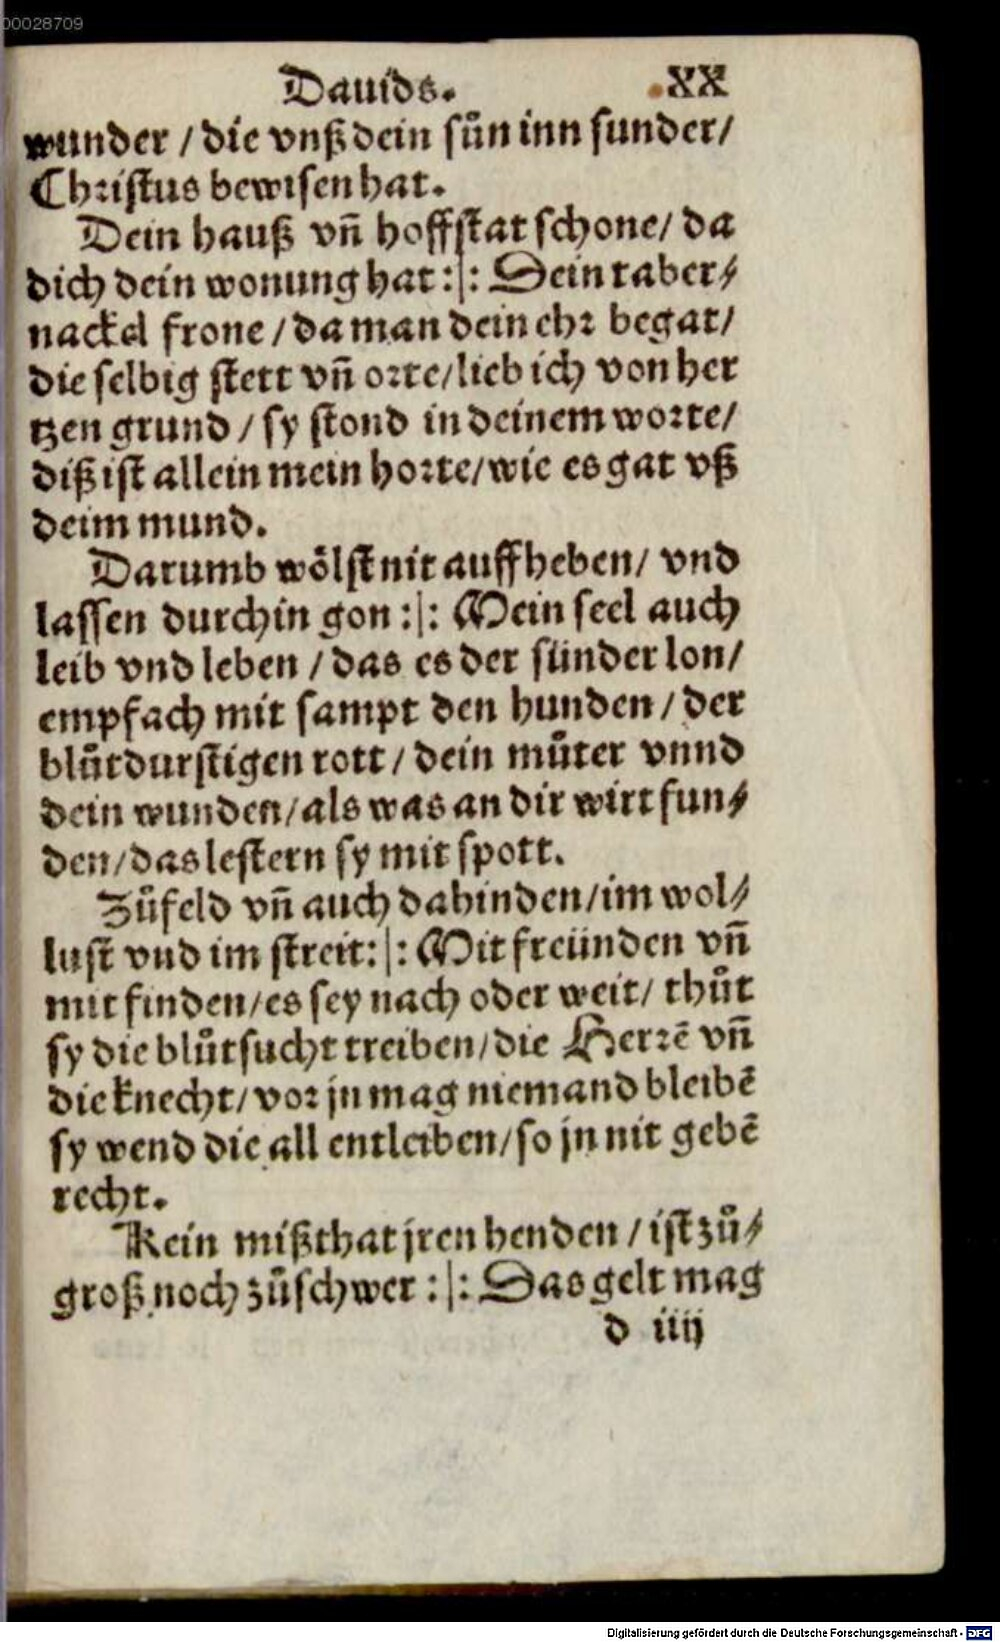 00028709
Dauids. XX
wunder / die vnß dein sůn inn sunder /
Christus bewisen hat.
Dein hauß vñ hoffstat schone / da
dich dein wonung hat :|: Dein taber⸗
nackel frone / da man dein ehr begat /
die selbig stett vñ orte / lieb ich von her
tzen grund / sy stond in deinem worte /
diß ist allein mein horte / wie es gat vß
deim mund.
Darumb wölst nit auffheben / vnd
lassen durchin gon :|: Mein seel auch
leib vnd leben / das es der sünder lon /
empfach mit sampt den hunden / der
blůtdurstigen rott / dein můter vnnd
dein wunden / als was an dir wirt fun⸗
den / das lestern sy mit spott.
Zůfeld vñ auch dahinden / im wol⸗
lust vnd im streit :|: Mit freünden vñ
mit finden / es sey nach oder weit / thůt
sy die blůtsucht treiben / die Herrē vñ
die knecht / vor jn mag niemand bleibē
sy wend die all entleiben / so jn nit gebē
recht.
Kein mißthat jren henden / ist zů⸗
groß noch zůschwer :|: Das gelt mag
d iiij
Digitalisierung gefördert durch die Deutsche Forschungsgemeinschaft - DFG